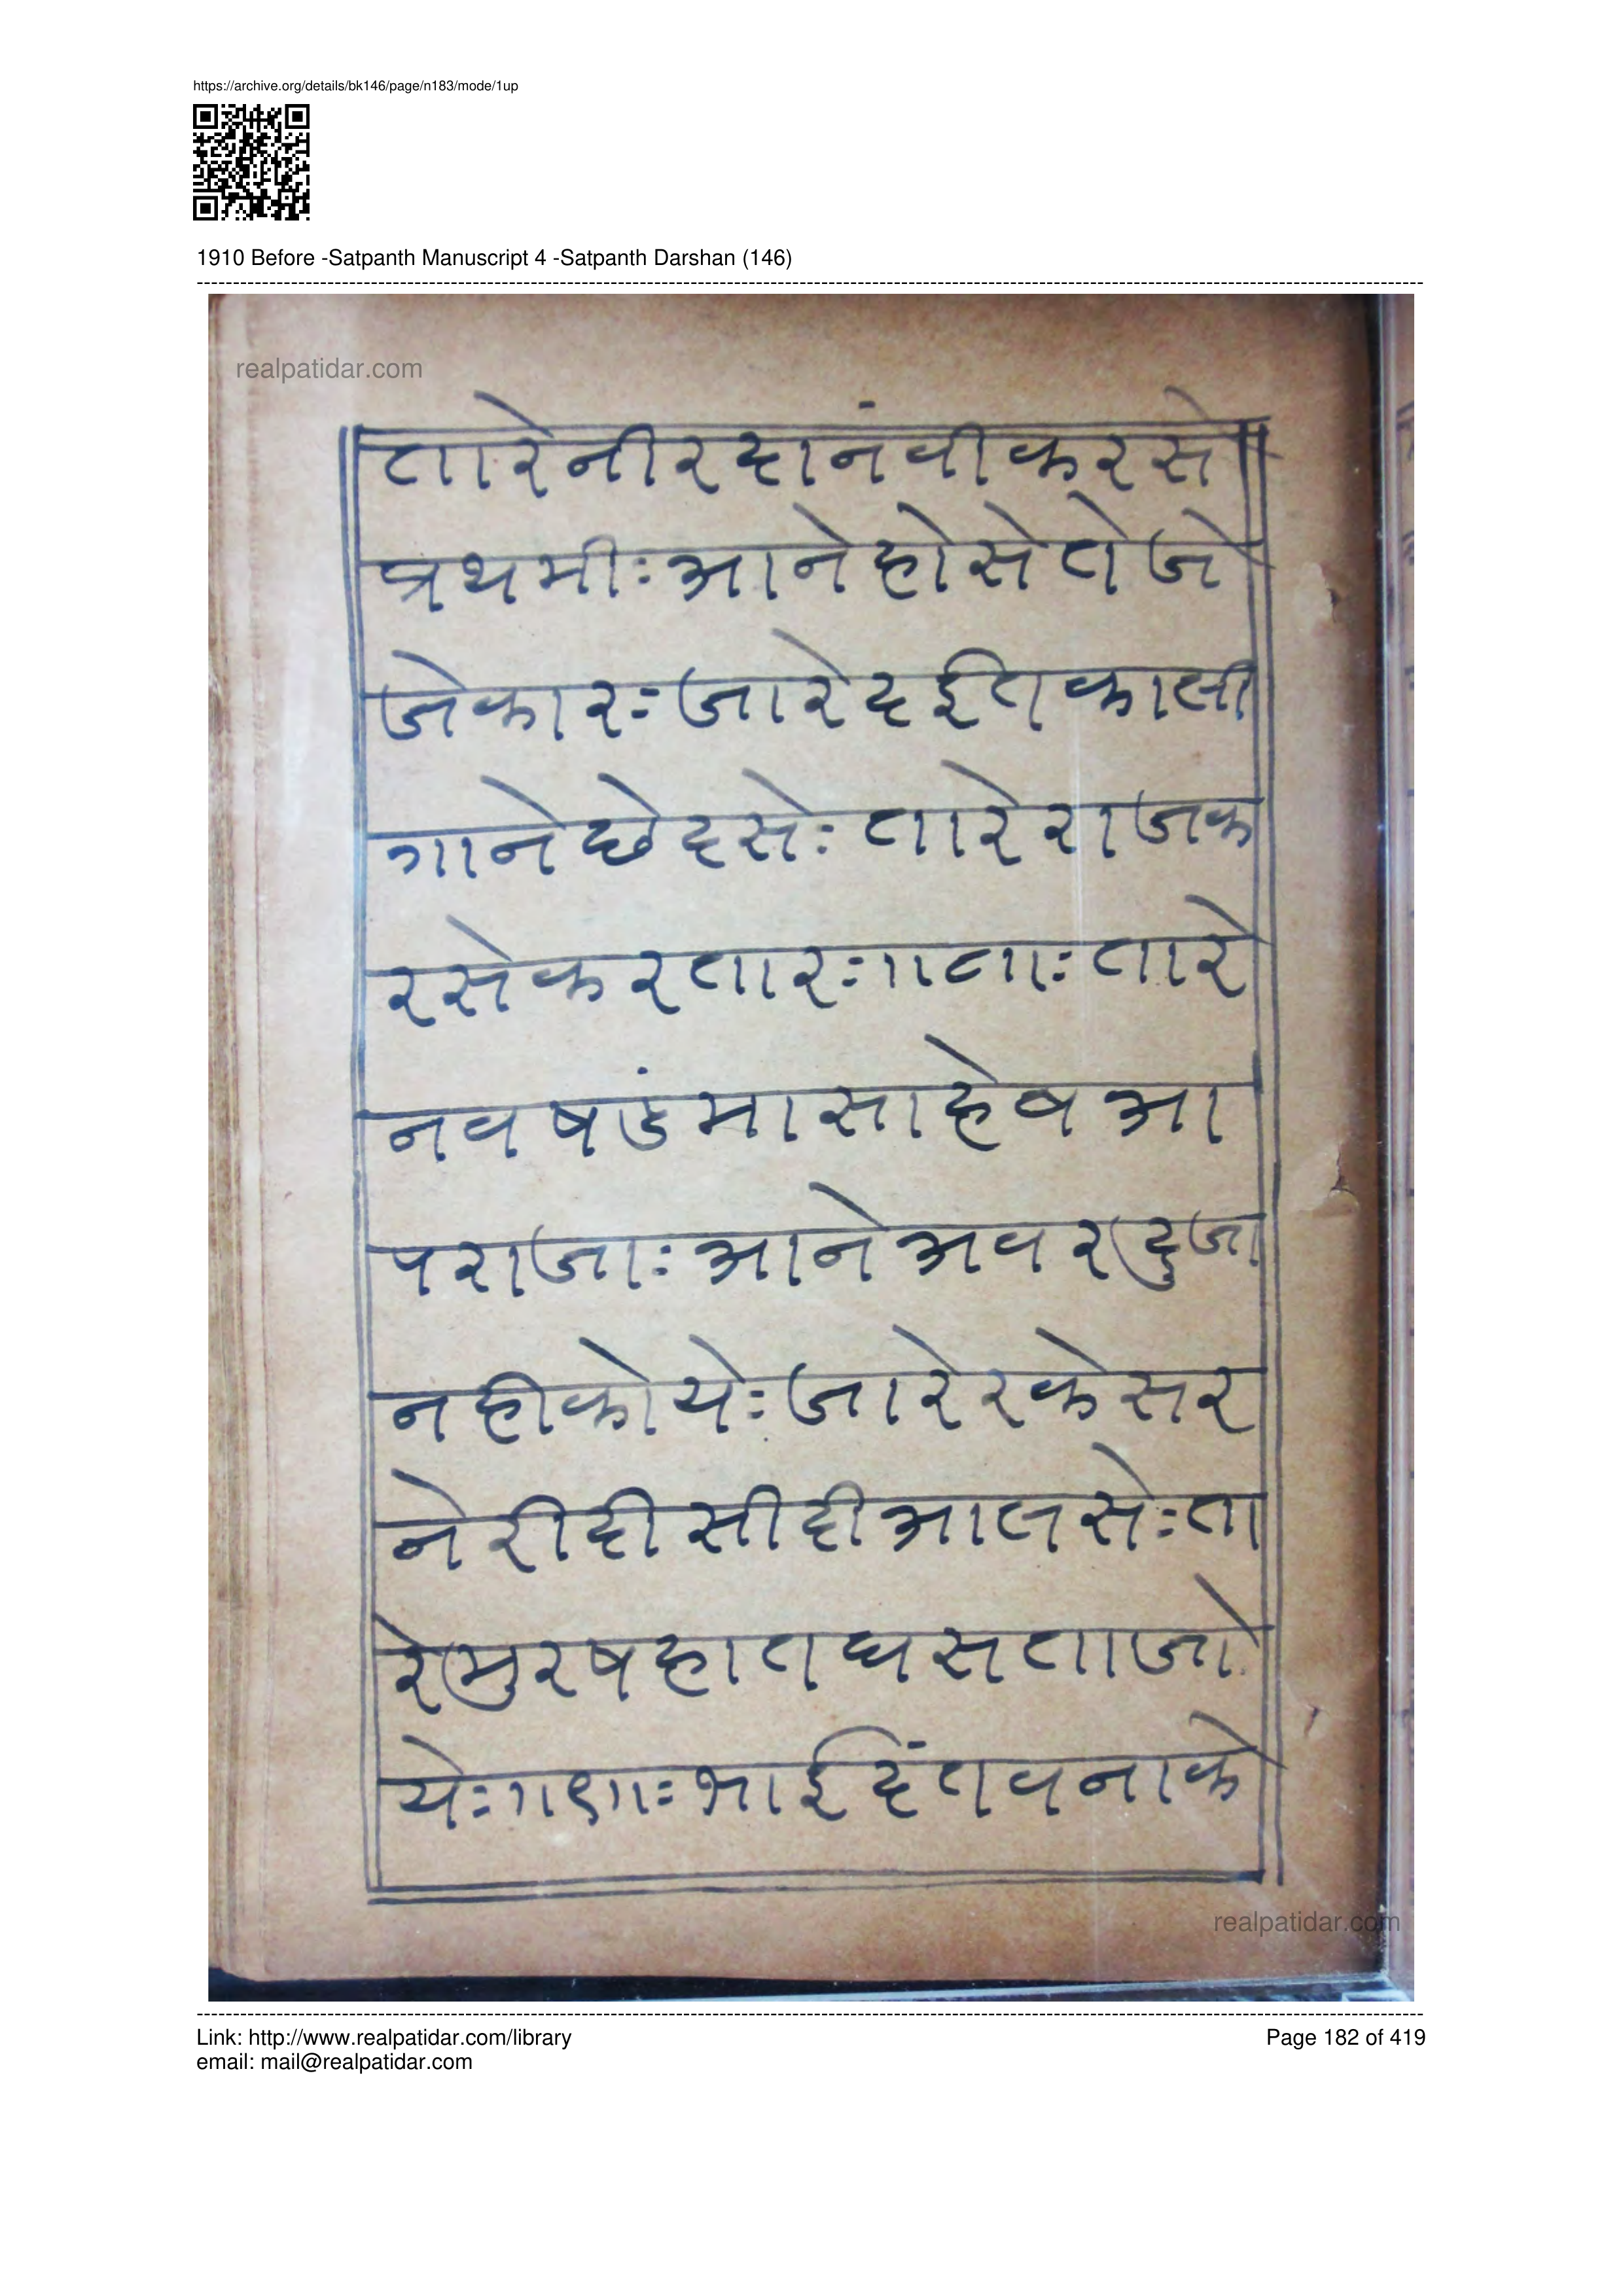 https://archive.org/details/bk146/page/n183/mode/1up
1910 Before -Satpanth Manuscript 4 -Satpanth Darshan (146)
realpatidar.com
तारेनीरदानंवीकरसे
प्रथमीःआनेहोसेतेजे
जेकारःजारेदईतकाली
गानेछेदसेःतारेराजक
रसेकरतारःगाटााःतारे
नवषडंमासाहेबआ
पराजाःआनेअवरदुजा
नहीकोयेःजारेरकेसर
नेरीदीसीदीआलसेःता
रेमुरषहातघसताजो
येःगाएााःभाईदंतवनाके
realpatidar.com
Link: http://www.realpatidar.com/library
Page 182 of 419
email: mail@realpatidar.com